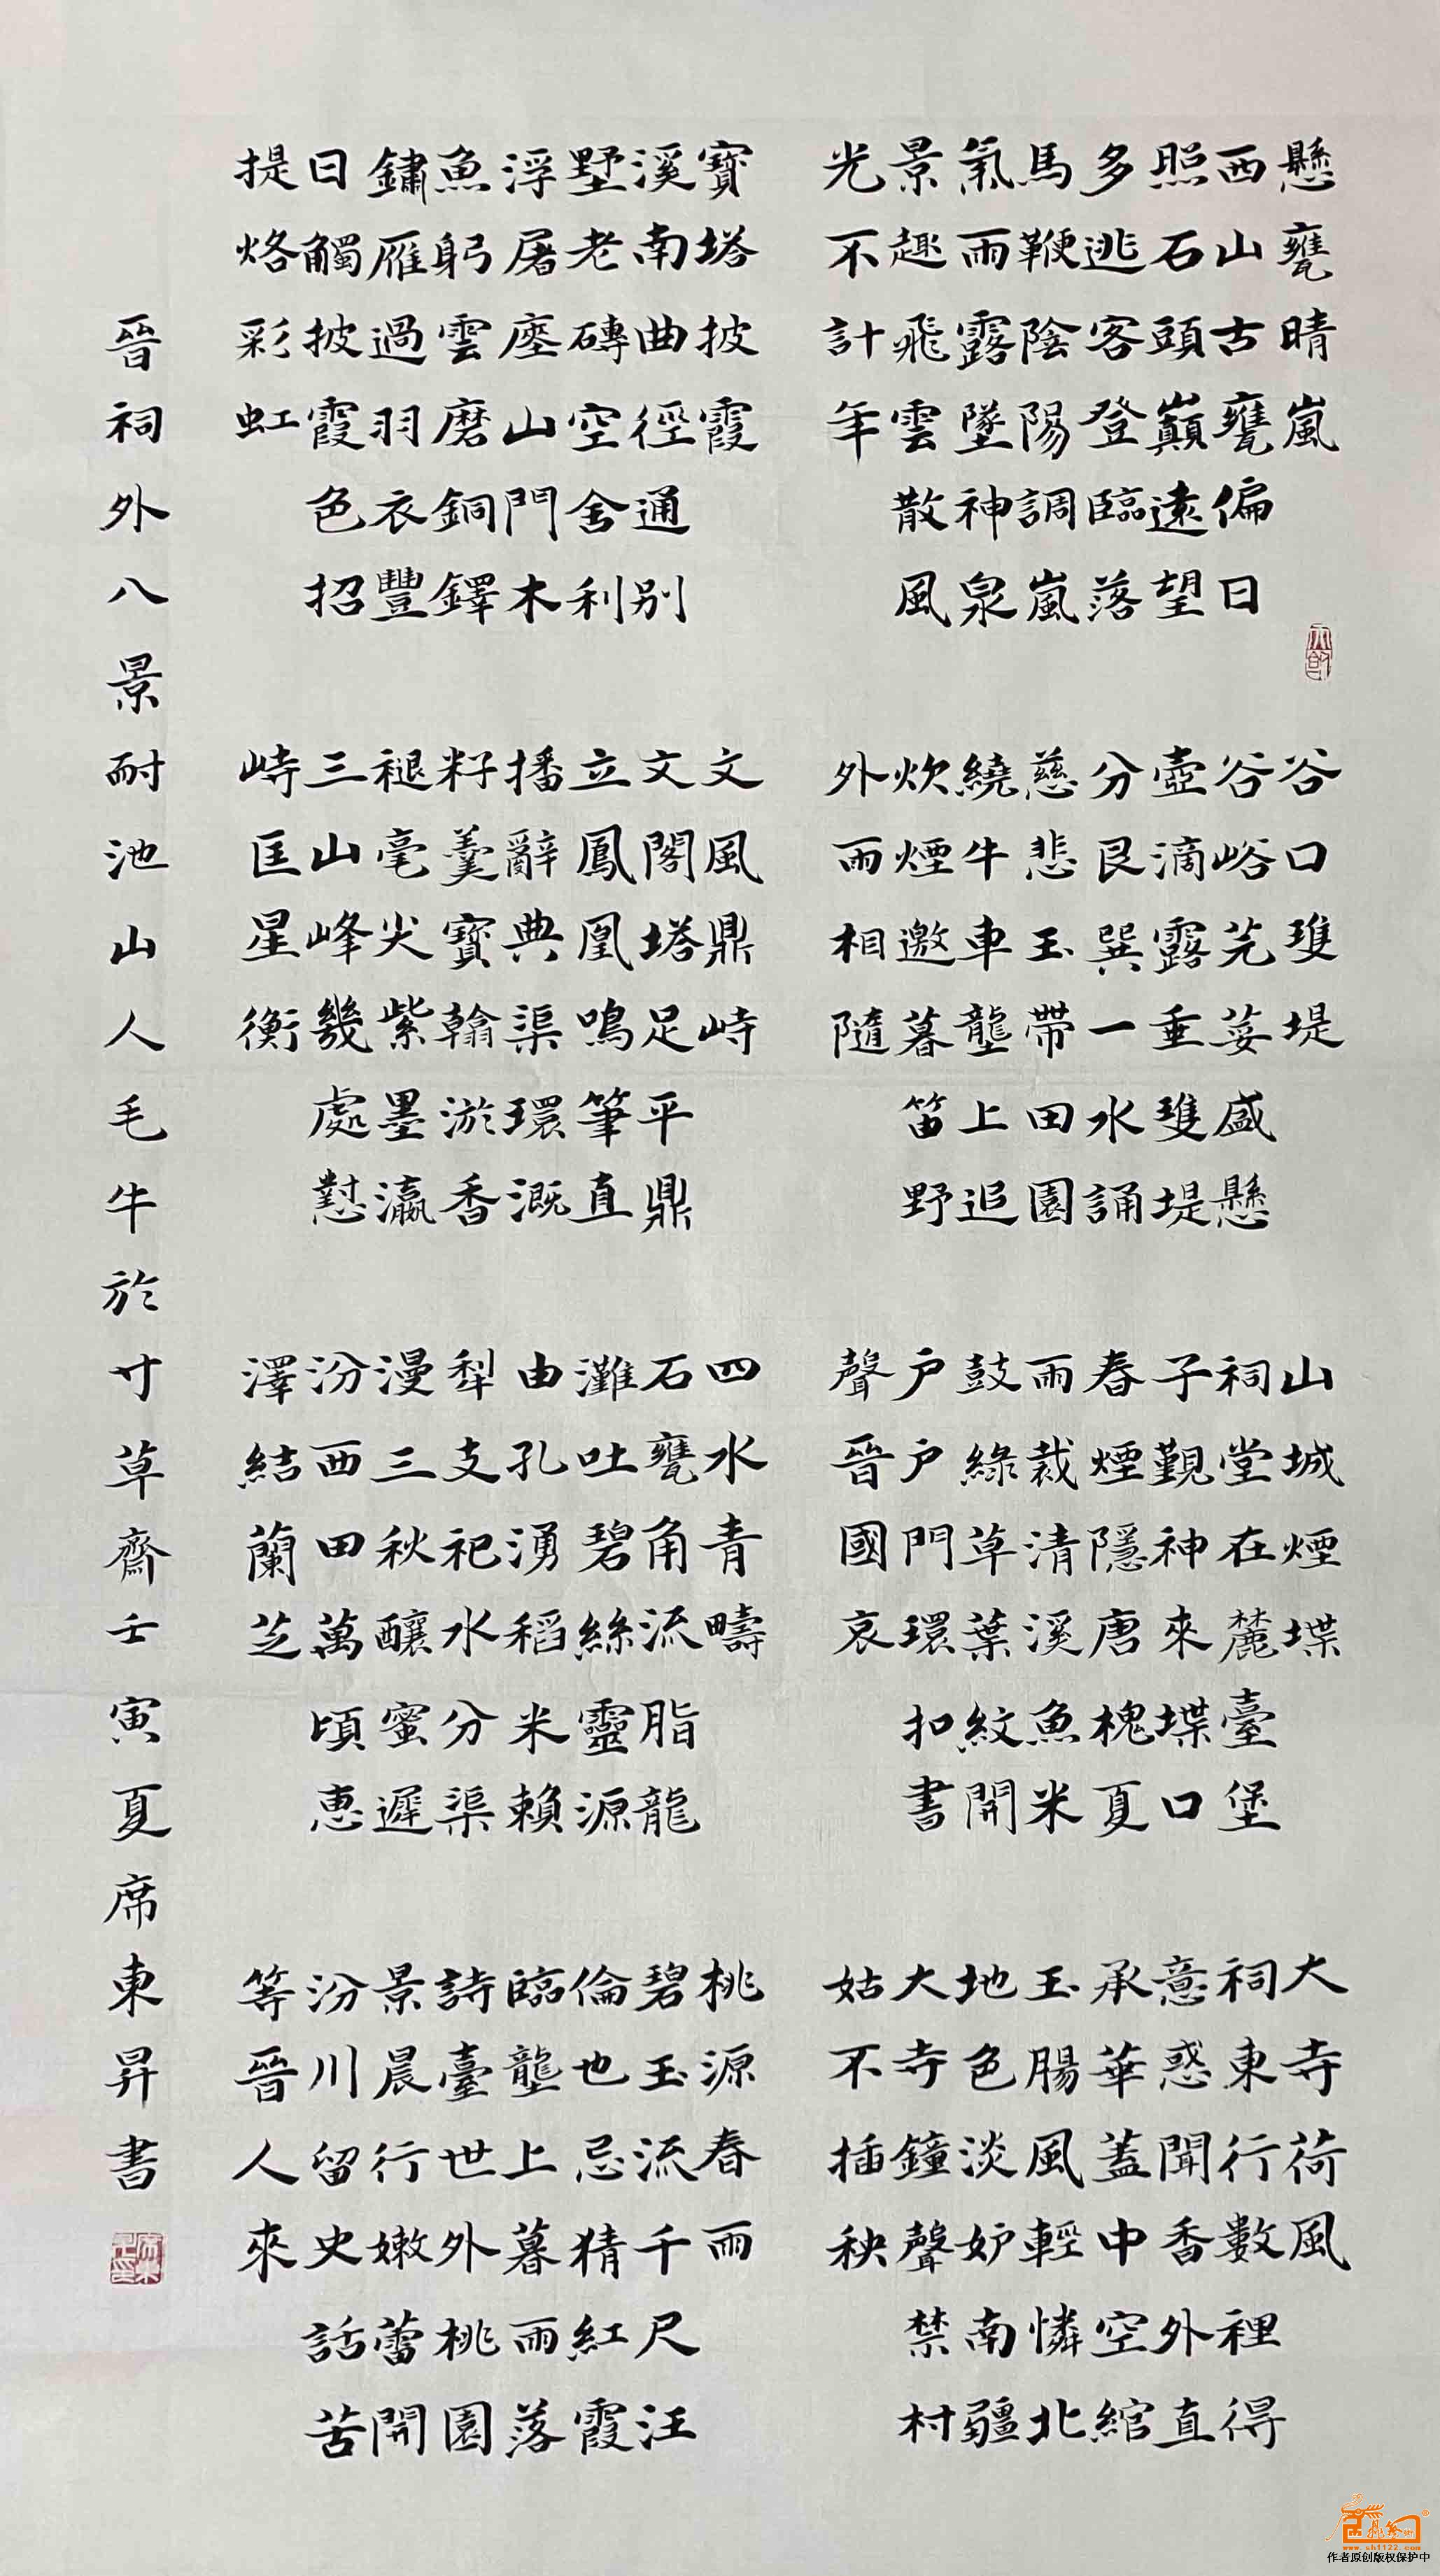 懸甕晴嵐
西山古甕偏日
照石頭巔遠望
多逃客登臨落
馬鞭陰陽調嵐
氣雨露墜神泉
景趣飛雲散風
光不計年
谷口雙堤
谷峪芫荽盛懸
壺滴露垂雙堤
分艮巽一水誦
慈悲玉帶田園
繞牛車壟上追
炊煙邀暮笛野
外雨相隨
山城煙堞
祠堂在麓臺堡
子覲神來堞口
春煙隱唐槐夏
雨裁清溪魚米
鼓綠草葉紋開
戶戶門環扣書
聲晉國哀
大寺荷風
祠東行數裡得
意惑聞香外直
承華蓋中空綰
玉腸風輕憐北
地色淡妒南疆
大寺鐘聲禁村
姑不插秧
寶塔披霞
溪南曲徑通別
墅老磚空舍利
浮屠座山門木
魚躬雲磨銅鐸
鏽雁過羽衣豐
日觸披霞色招
提烙彩虹
文風鼎峙
文閣塔足平鼎
立鳳凰鳴筆直
播辭典渠環溉
籽羹寶翰淤香
褪毫尖紫墨瀛
三山峰幾處懟
峙匡星衡
四水青疇
石甕角流脂龍
灘吐碧絲靈源
由孔湧稻米賴
犁支祀水分渠
漫三秋釀蜜遲
汾西田萬頃惠
澤結蘭芝
桃源春雨
碧玉流千尺汪
倫也忌猜紅霞
臨壟上暮雨落
詩臺世外桃園
景晨行嫩蕾開
汾川留史話苦
等晉人來
晉祠外八景耐池山人毛牛於寸草齋壬寅夏席東昇書
www.sh1122.com
作者原创版权保护中